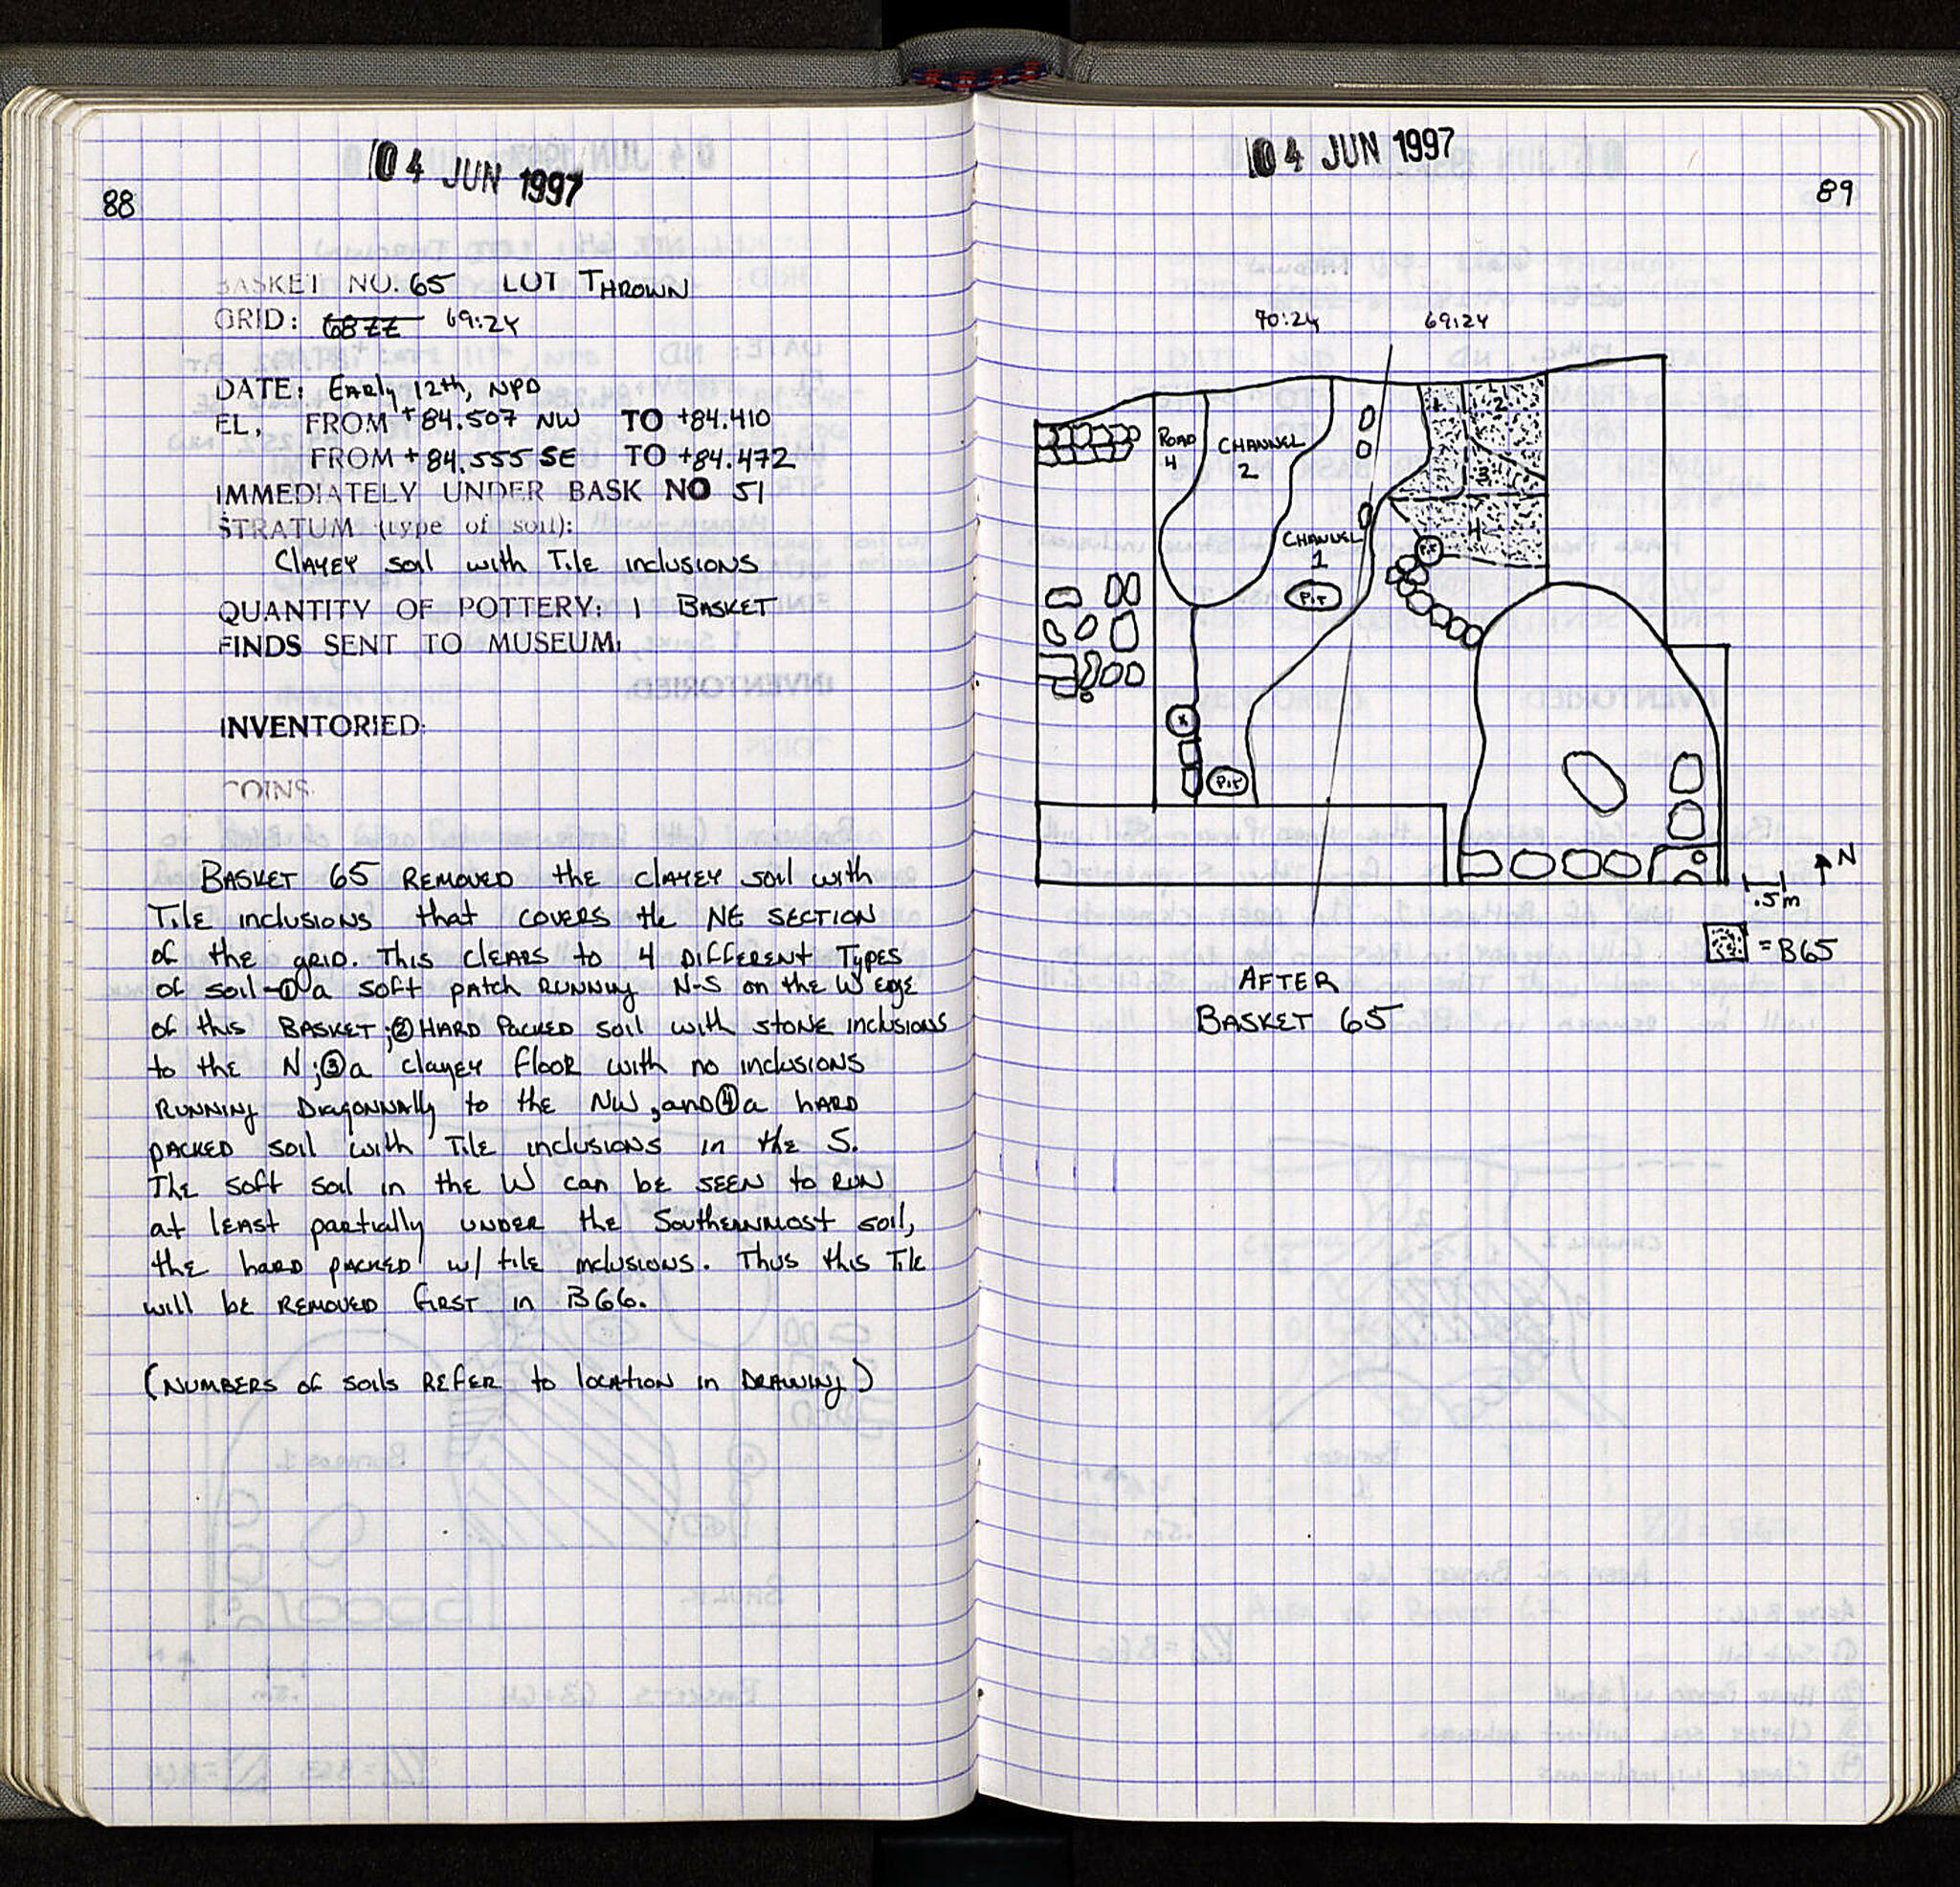 04 JUN 1997
88
BASKET NO. 65 LOT THROWN
GRID: 68ZZ 69:24
DATE: EARLY 12th, NPD
EL, FROM +84.507 NW TO +84.410
FROM +84.555 SE TO +84.472
IMMEDIATELY UNDER BASK NO 51
STRATUM (type of soil):
CLAYEY SOIL with TILE INCLUSIONS
QUANTITY OF POTTERY: 1 BASKET
FINDS SENT TO MUSEUM:
INVENTORIED:
COINS
BASKET 65 REMOVED the CLAYEY SOIL with
TILE INCLUSIONS that COVERS the NE SECTION
of the GRID. THIS CLEARS to 4 DIFFERENT TYPES
of SOIL - ① a SOFT PATCH RUNNING N-S on the W EDGE
of this BASKET; ② HARD PACKED SOIL with STONE INCLUSIONS
to the N; ③ a CLAYEY FLOOR with no INCLUSIONS
RUNNING DIAGONNALLY to the NW, and ④ a HARD
PACKED SOIL with TILE INCLUSIONS in the S.
THE SOFT SOIL in the W can be SEEN to RUN
at LEAST PARTIALLY UNDER the SOUTHERNMOST SOIL,
the HARD PACKED w/ tile INCLUSIONS. Thus this TILE
will be REMOVED FIRST in B66.
(NUMBERS of SOILS REFER to LOCATION in DRAWING)
04 JUN 1997
89
70:24 69:24
1 2
ROAD
4
CHANNEL
2
3
4
CHANNEL
1
PIT
X
PIT
N
.5m
= B65
AFTER
BASKET 65